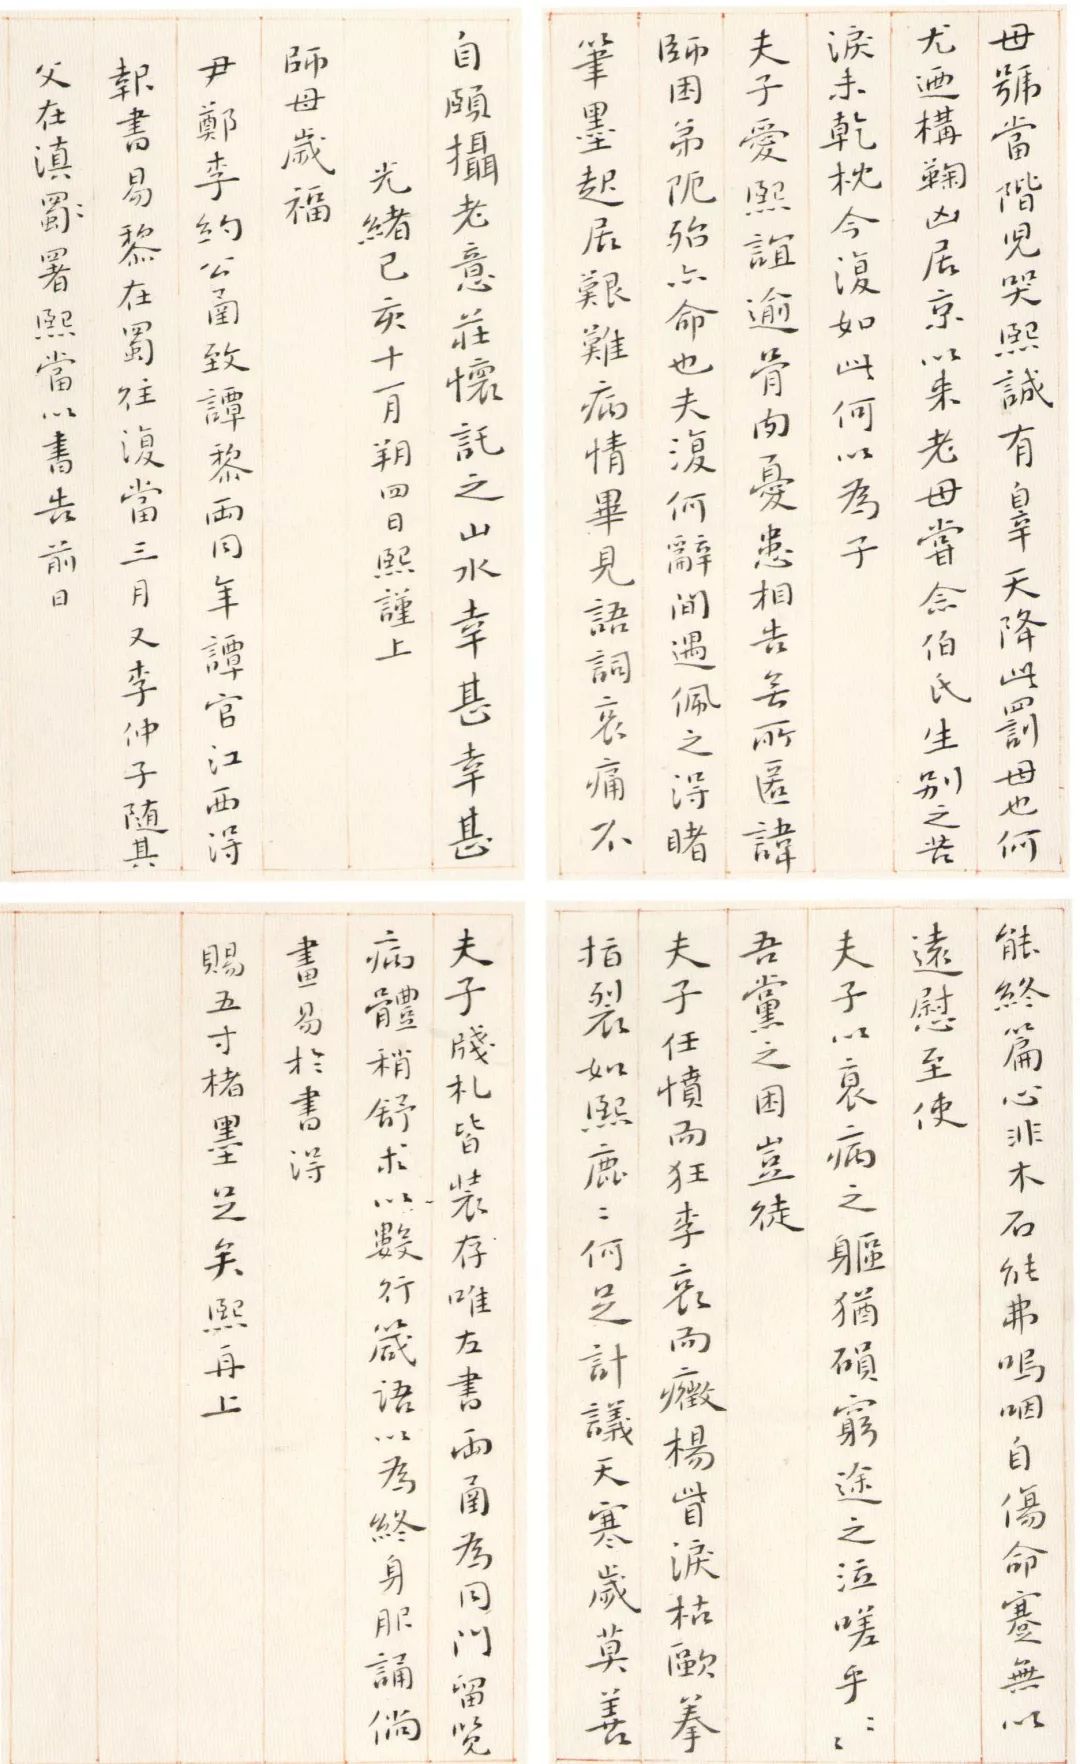 母號當階兒哭熙誠有辠天降此罰母也何
尤迺構鞠凶居京以來老母嘗念伯氏生別之苦
淚未乾枕今復如此何以為子
夫子愛熙誼逾骨肉憂患相告無所匿諱
師困弟阨殆亦命也夫復何辭間遇佩之得睹
筆墨起居艱難病情畢見語詞哀痛不
能終篇心非木石能弗嗚咽自傷命蹇無以
遠慰至使
夫子以衰病之軀猶磒窮途之泣嗟乎〻〻
吾黨之困豈徒
夫子任憤而狂李哀而癥楊眥淚枯歐拳
指裂如熙鹿〻何足計議天寒歲莫善
自頤攝老意莊懷託之山水幸甚幸甚
光緒己亥十一月朔四日熙謹上
師母歲福
尹鄭李約公圅致譚黎兩同年譚官江西得
報書易黎在蜀往復當三月又李仲子隨其
父在滇蜀〻署熙當以書告前日
夫子牋札皆裝存唯左書兩圅為同門留覽
病體稍舒求以數行箴語以為終身服誦倘
畫易於書得
賜五寸楮墨足矣熙再上